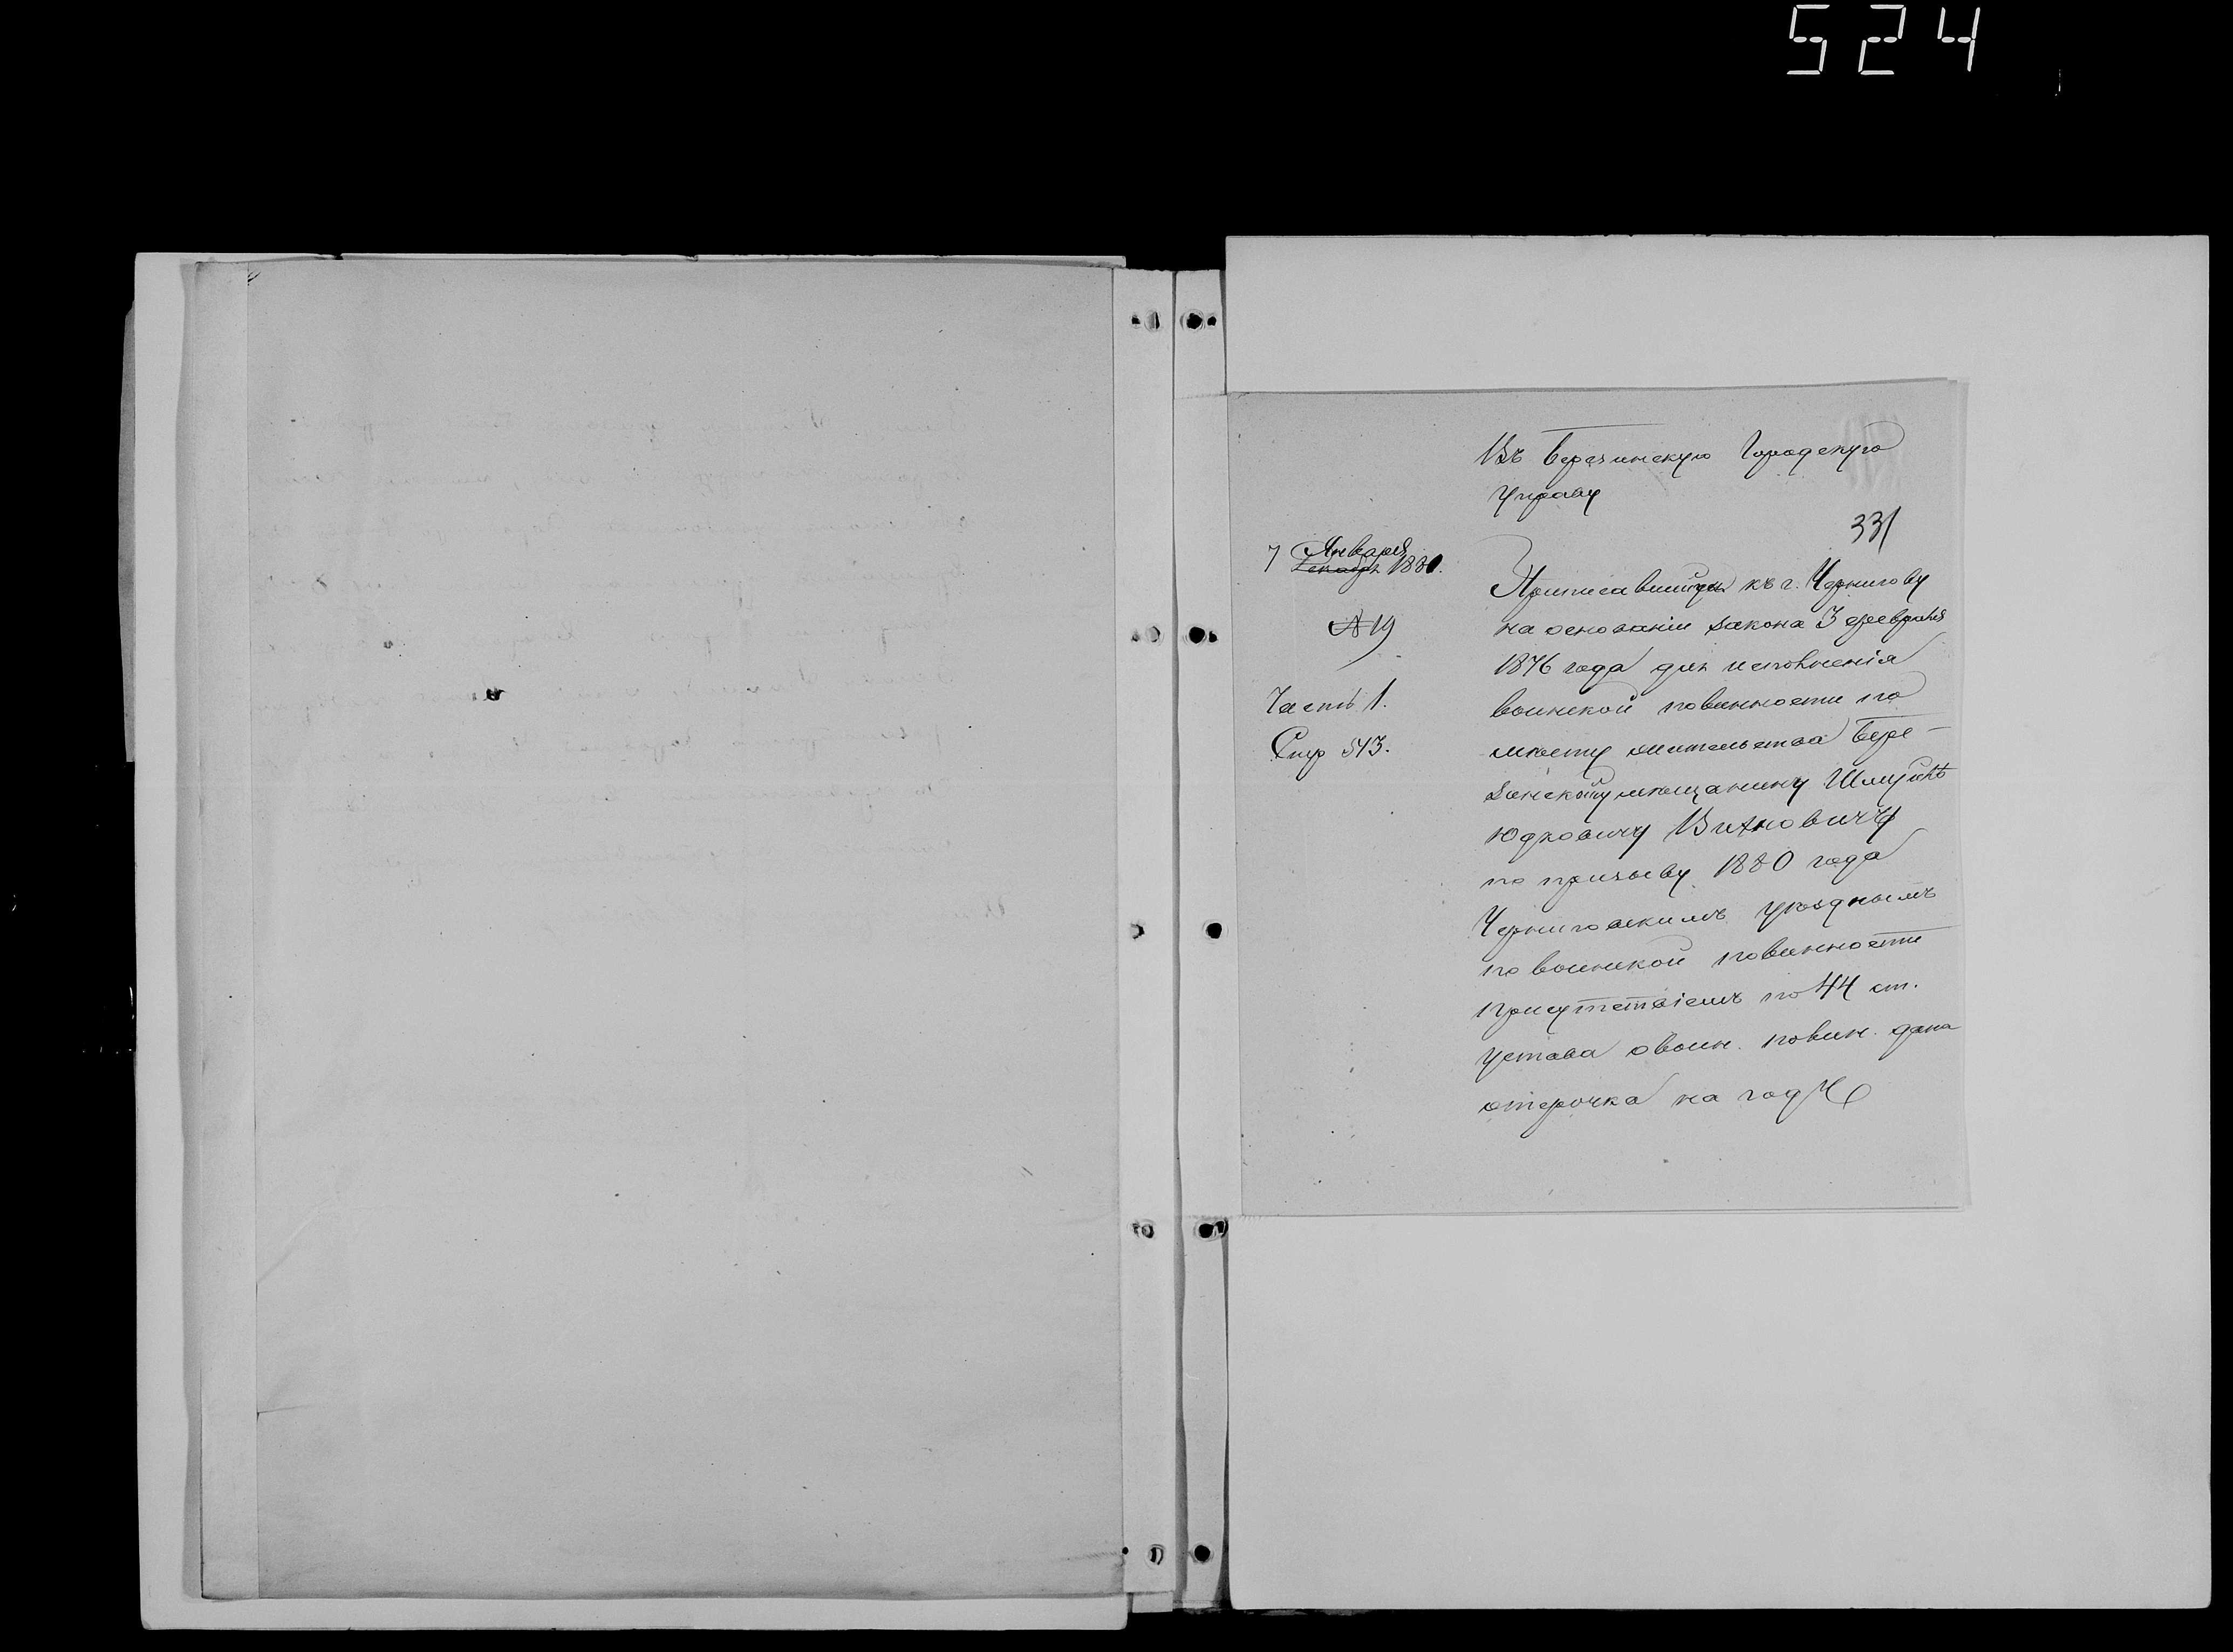 524
Въ Березинскую Городскую
Управу
331
7 Января
Декабря 1881.
№ 19
Часть 1.
Стр 543.
Приписавшийся къ г. Чернигову
на основаніи закона 3 февраля
1876 года для исполненія
воинской повинности по
мѣсту жительства Бере-
занскому мѣщанину
Юдковичу
по призыву 1880 года
Черниговскимъ уѣзднымъ
по воинской повинности
присутствіемъ по 44 ст.
устава о воин. повин. дана
отсрочка на годъ